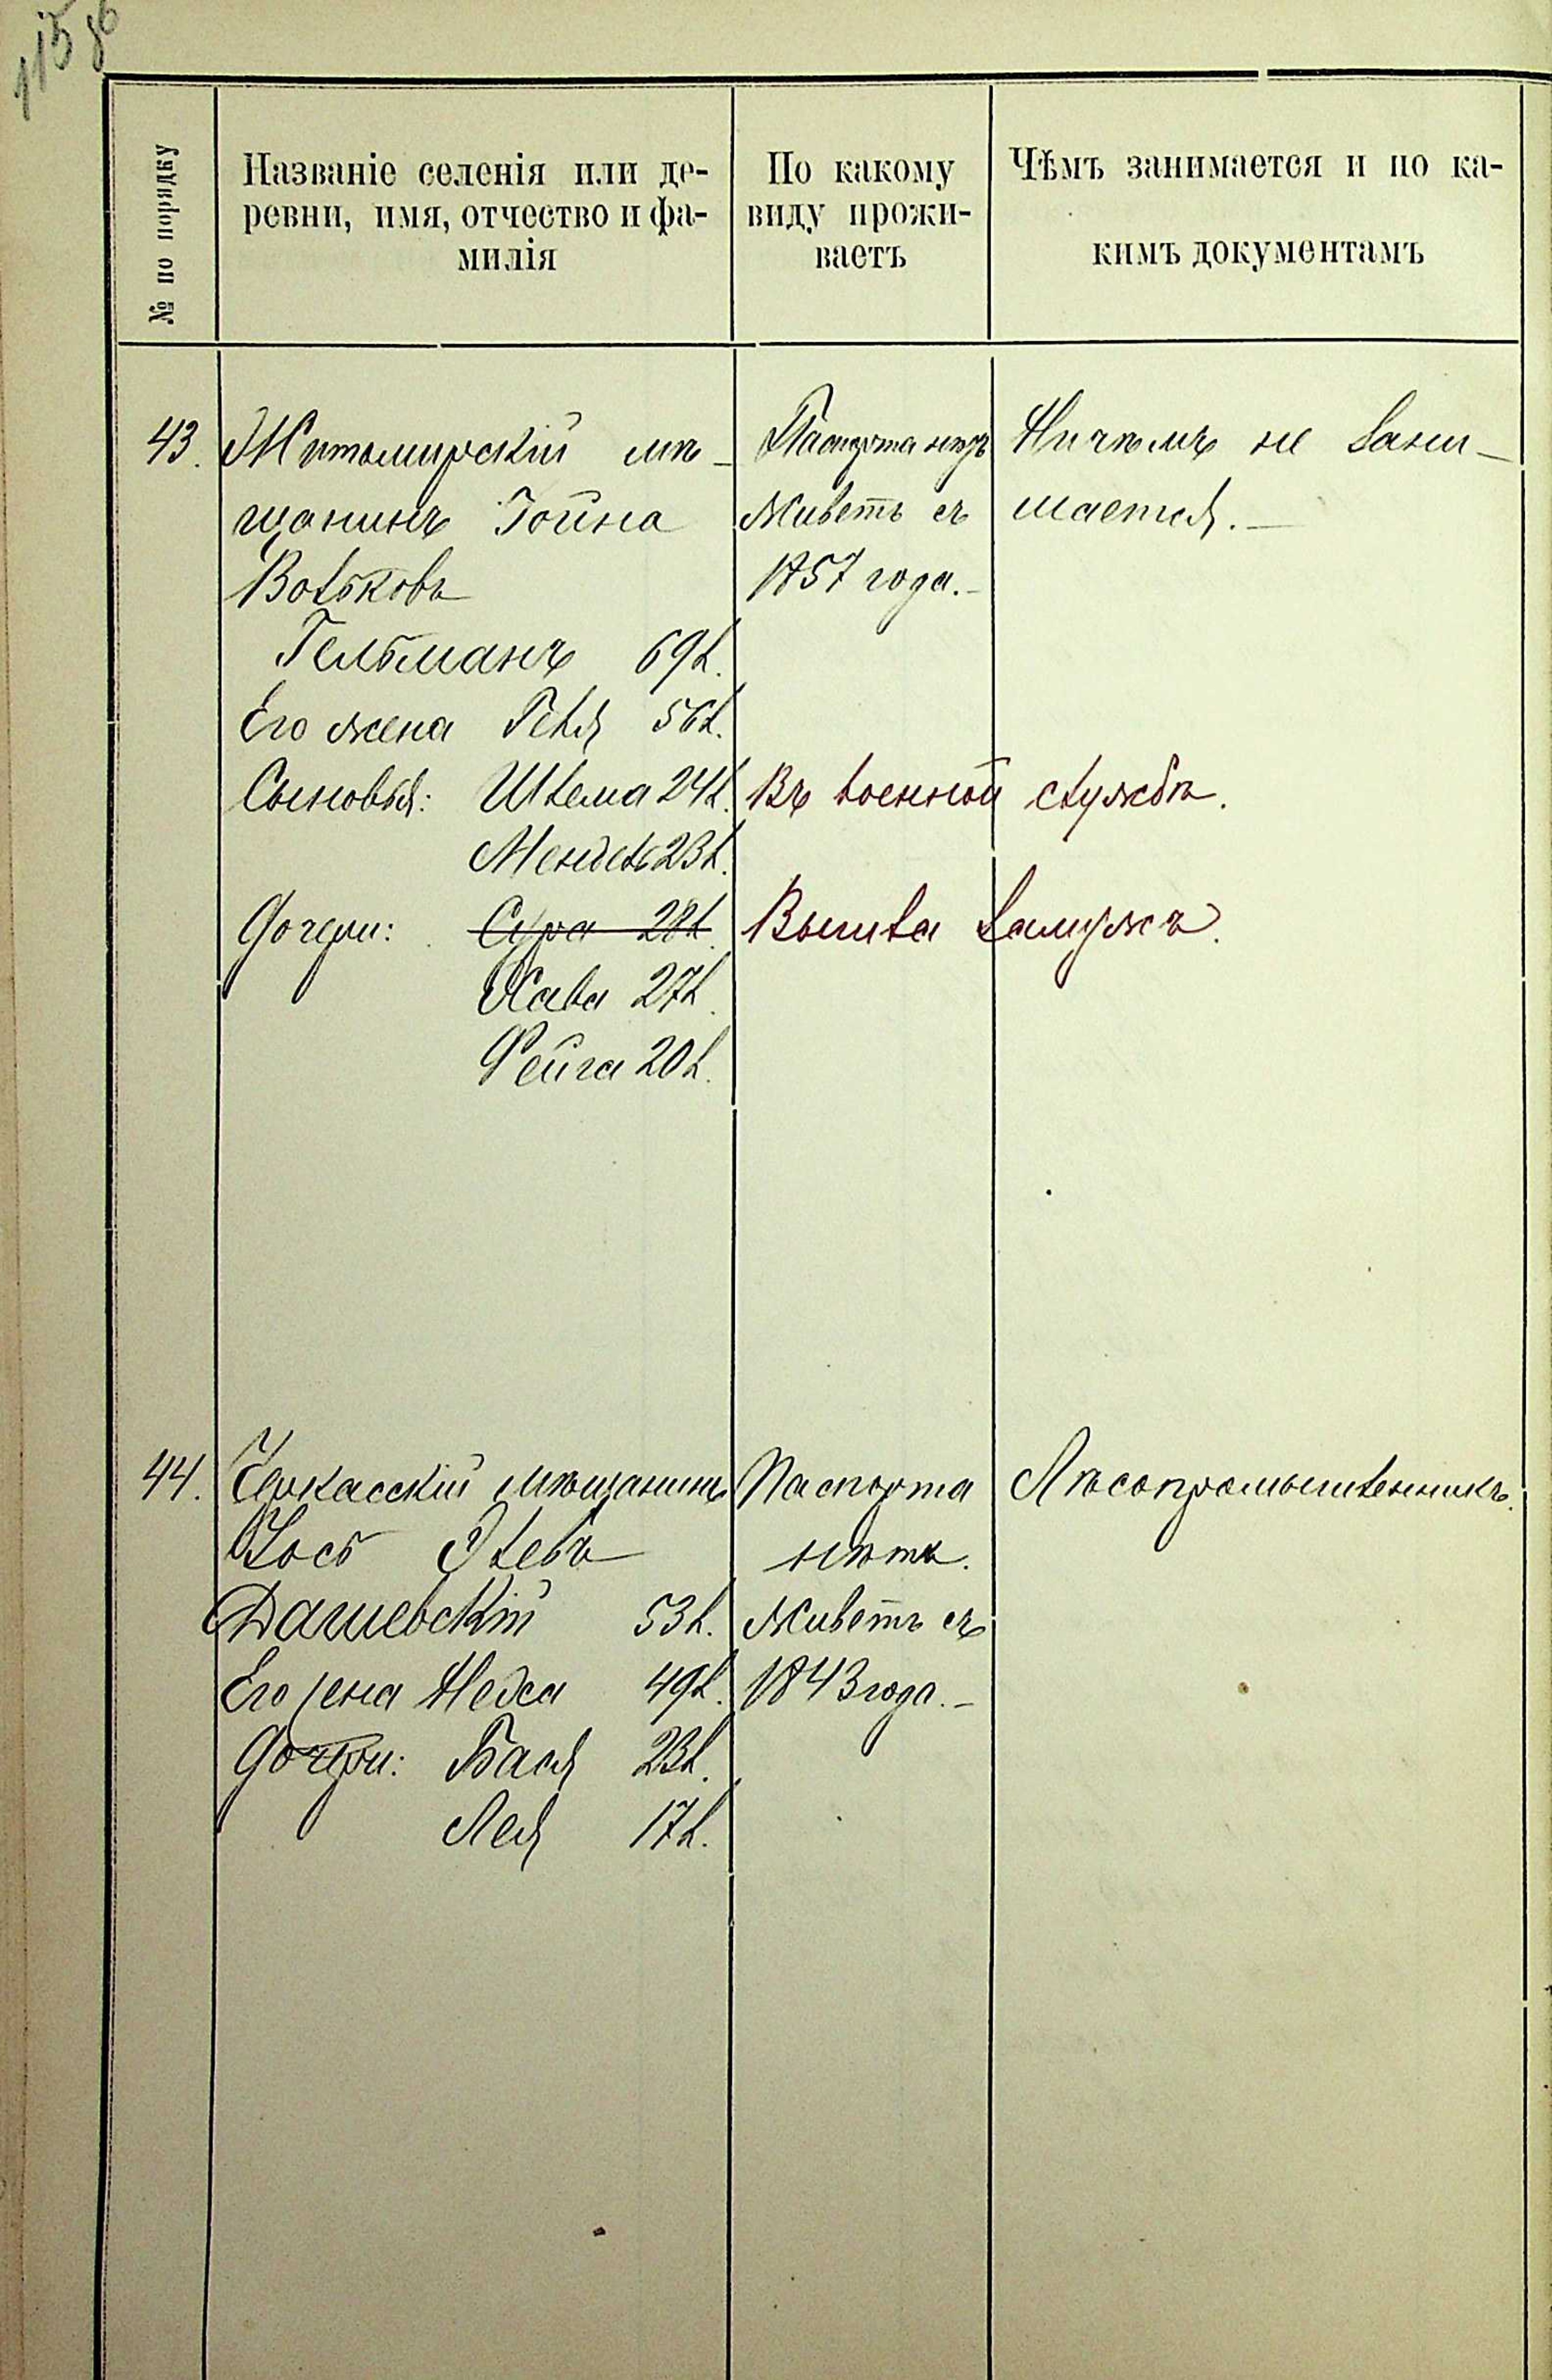 № по порядку
Названіе селенія или де-
ревни, имя, отчество и фа-
милія
По какому
виду прожи-
ваетъ
Чѣмъ занимается и по ка-
кимъ документамъ
43.
Житомирскій мѣ-
щанинъ Іойна
Вольковъ
Гельманъ 69 л.
Его жена Гейя 56 л.
Сыновья: Шлема 24 л.
Мендель 23 л.
Дочери: Сура 28 л.
Хава 27 л.
Фейга 20 л.
Паспорта нѣтъ
Живетъ съ
1857 года.-
Ничѣмъ не зани-
мается.-
Въ военной службѣ.
Вышла замужъ.
44.
Черкасскій мѣщанинъ
Іось Элевъ
Дашевскій 53 л.
Его жена Неха 49 л.
Дочери: Бася 23 л.
Лея 17 л.
Паспорта
нѣтъ.
Живетъ съ
1843 года.-
Лѣсопромышленникъ.